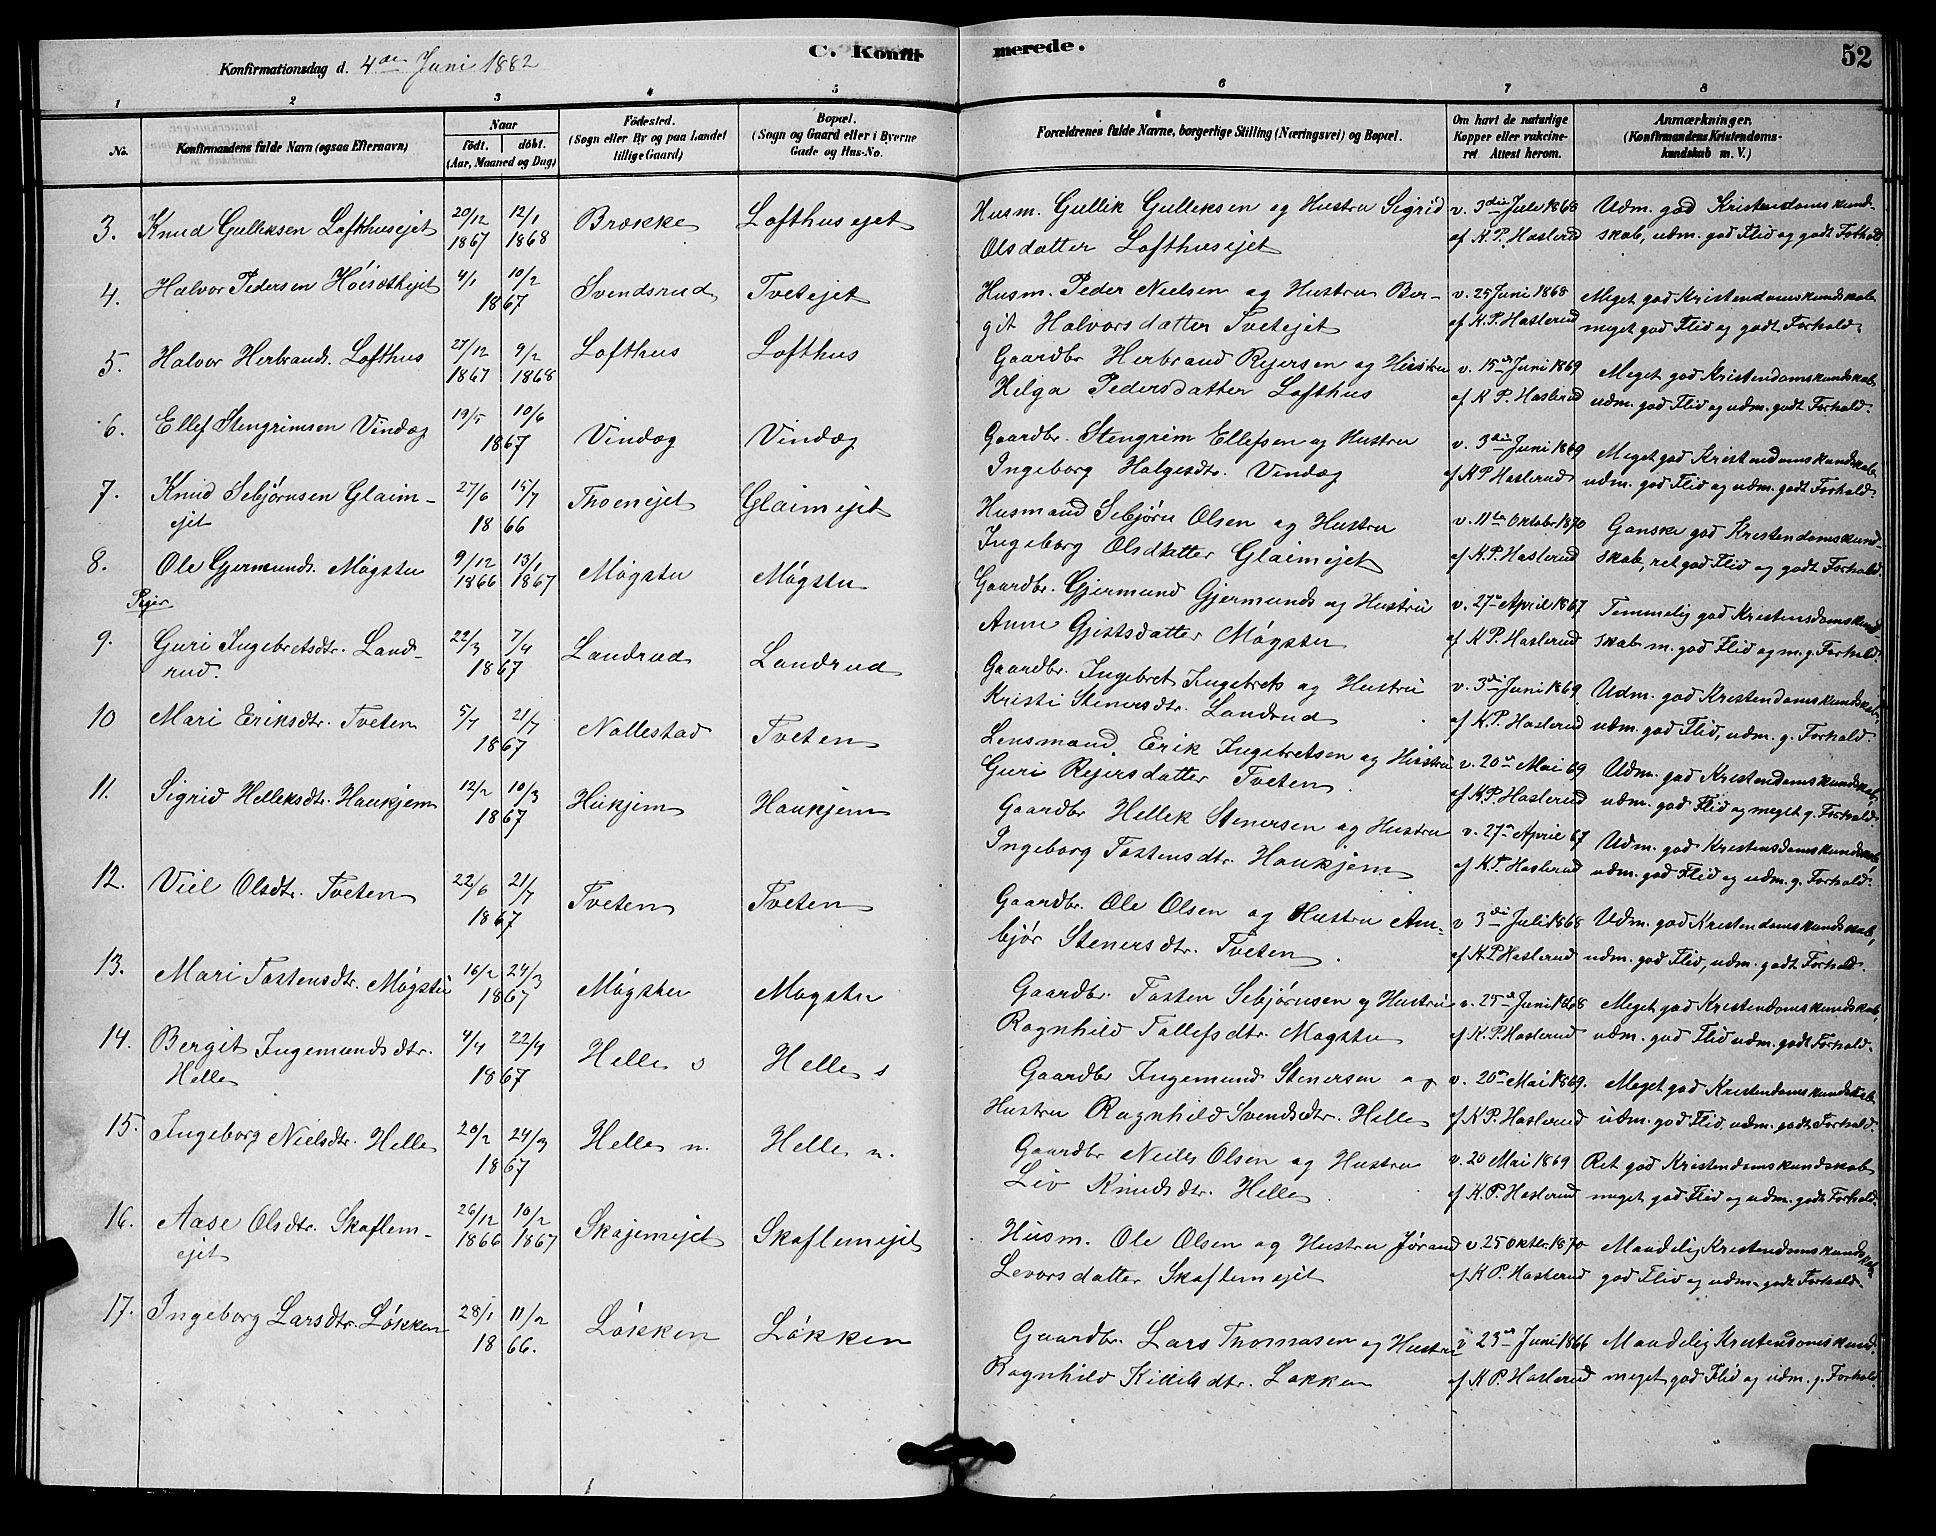 C. Konfir merede.
52
Konfirmationsdag d. 4de Juni 1882
1 2 3 4 5 6 7 8
No.
Konfirmandens fulde Navn (ogsaa Efternavn)
Naar
födt. döbt.
(Aar, Maaned og Dag)
Födested.
(Sogn eller By og paa Landet
tillige Gaard)
Bopæl.
(Sogn og Gaard eller i Byerne
Gade og Hus-No.
Forældrenes fulde Navne, borgerlige Stilling (Næringsvei) og Bopæl.
Om havt de naturlige
Kopper eller vakcine-
ret Attest herom.
Anmærkninger.
(Konfirmandens Kristendoms-
kundskab m. V.)
3. Knud Gulleksen Lofthusejet 20/12 12/1 Brække Lofthusejet Husm. Gullik Gulleksen og Hustru Sigrid v. 3die Juli 1868 Udm. god Kristendomskund-
1867 1868 Olsdatter Lofthusejet af K. P. Haslerud skab, udm. god Flid og godt Forhold
4. Halvor Pedersen Höisætejet 4/1 10/2 Svendsrud Tvetejet Husm. Peder Nielsen og Hustru Ber- v. 25 Juni 1868 Meget god Kristendomskundskab
1867 git Halvorsdatter Tvetejet af K. P. Haslerud meget god Flid og godt Forhold.
5. Halvor Herbrands. Lofthus 27/12 9/2 Lofthus Lofthus Gaardbr Herbrand Rejersen og Hustru v. 15de Juni 1869 Meget god Kristendomskundskab
1867 1868 Helga Pedersdatter Lofthus af K P. Haslerud udm. god Flid og udm. godt Forhold.
6. Ellef Stengrimsen Vindæg 19/5 10/6 Vindæg Vindæg Gaardbr. Stengrim Ellefsen og Hustru v. 3die Juni 1869 Meget god Kristendomskundskab
1867 Ingeborg Halgesdtr. Vindæg af K P Haslerud udm. god Flid og udm. godt Forhold
7. Knud Sebjørnsen Glaim- 27/6 15/7 Thoenejet Glaimejet Husmand Sebjørn Olsen og Hustru v. 11te Oktober 1870 Ganske god Kristendomskund-
ejet 1866 Ingeborg Olsdatter Glaimejet af K. P. Haslerud skab, ret god Flid og godt Forhold.
8. Ole Gjermunds. Møgster 9/12 13/1 Møgster Møgster Gaardbr. Gjermund Gjermunds og Hustru v. 27de April 1867 Temmelig god Kristendomskund-
1866 1867 Anne Datter Møgster af K P. Haslerud skab m. god Flid og m. g. Forhold.
Piger
9. Guri Ingebretsdtr. Land- 22/3 7/4 Landrud Landrud Gaardbr. Ingebret Ingebrets og Hustru v. 3die Juni 1869 Udm. god Kristendomskundskab,
rud. 1867 Kristi Stenersdtr. Landrud af K. P. Haslerud udm. god Flid, udm. g. Forhold.
10 Mari Eriksdtr. Tveten 5/7 21/7 Nollestad Tveten Lensmand Erik Ingebretsen og Hustru v. 20de Mai 69 Udm. god Kristendomskundskab,
1867 Guri Rejersdatter Tveten. af K. P. Haslerud udm. god Flid og meget g. Forhold.
11. Sigrid Helleksdtr. Haukjem 12/2 10/3 Hukjem Haukjem Gaardbr Hellek Stenersen og Hustru v. 27de April 67 Udm. god Kristendomskundskab,
1867 Ingeborg Tostensdtr. Haukjem af K. P. Haslerud udm. god Flid og udm. g. Forhold.
12. Viel Olsdtr. Tveten 22/6 21/7 Tveten Tveten Gaardbr. Ole Olsen og Hustru Am- v 3die Juli 1868 Udm. god Kristendomskundskab,
1867 bjør Stenersdtr. Tveten. af K P. Haslerud udm. god Flid, udm. godt Forhold.
13. Mari Tostensdtr. Møgster 16/2 24/3 Møgster Møgster Gaardbr. Tosten Sebjørnsen og Hustru v. 25de Juni 1868 Meget god Kristendomskundskab,
1867 Ragnhild Tollefsdtr. Møgster af K. P. Haslerud udm. god Flid udm. godt Forhold.
14. Bergit Ingemundsdtr. 4/4 22/4 Helle s Helle s Gaardbr Ingemund Stenersen og v. 20de Mai 1869. Meget god Kristendomskundskab
Helle 1867 Hustru Ragnhild Svendsdtr. Helle af K P. Haslerud udm. god Flid, udm. godt Forhold.
15. Ingeborg Nielsdtr. Helle 20/2 24/3 Helle n. Helle n. Gaardbr Neils Olsen og Hustru v. 20 Mai 1869 Ret god Kristendomskundskab
1867 Liv Knudsdtr. Helle. af K. P. Haslerud meget god Flid og udm. godt Forhold.
16. Aase Olsdtr. Skaflem- 26/12 10/2 Skajemejet Skaflemejet Husm. Ole Olsen og Hustru Jørand v. 25 Oktbr. 1870 Maadelig Kristendomskundskab
ejet 1866 1867 Levorsdatter Skaflemejet af K P. Haslerud god Flid og udm. godt Forhold.
17. Ingeborg Larsdtr. Løkken 28/1 11/2 Løkken Løkken Gaardbr. Lars Thomasen og Hustru v 23de Juni 1866 Maadelig Kristendomskund-
1866. Ragnhild Killiksdtr. Løkken af K P. Haslerud meget god Flid og udm. g. Forhold.